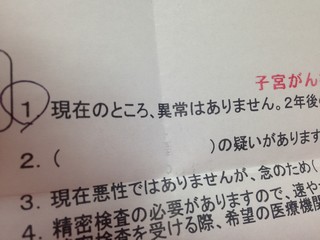 子宮がん
1 現在のところ、異常はありません。2年後の
2. (　　　　　)の疑いがあります
3. 現在悪性ではありませんが、念のため(
4. 精密検査の必要がありますので、速や
密検査を受ける際、希望の医療機関